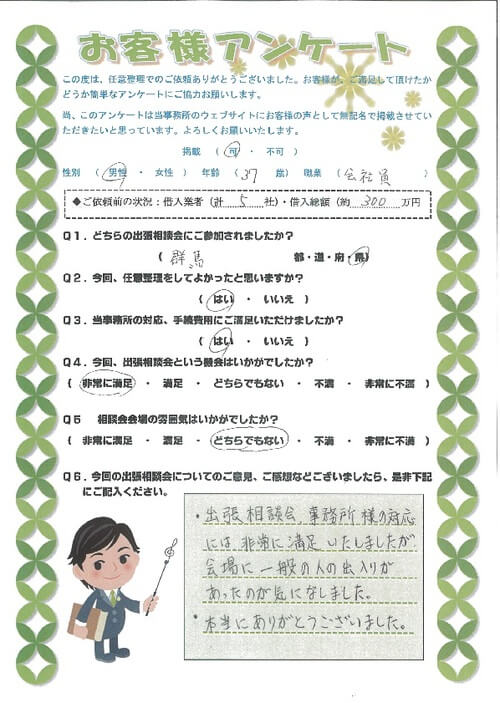 お客様アンケート
この度は、任意整理でのご依頼ありがとうございました。お客様が、ご満足して頂けたか
どうか簡単なアンケートにご協力お願いします。
尚、このアンケートは当事務所のウェブサイトにお客様の声として無記名で掲載させてい
ただきたいと思っています。よろしくお願いいたします。
掲載 ( 可 ・ 不可 )
性別 ( 男性 ・ 女性 ) 年齢 ( 37 歳) 職業 ( 会社員 )
◆ご依頼前の状況:借入業者(計 5 社)・借入総額(約 300 万円
Q1.どちらの出張相談会にご参加されましたか?
( 群馬 都・道・府・県)
Q2.今回、任意整理をしてよかったと思いますか?
( はい ・ いいえ )
Q3.当事務所の対応、手続費用にご満足いただけましたか?
( はい ・ いいえ )
Q4.今回、出張相談会という機会はいかがでしたか?
( 非常に満足 ・ 満足 ・ どちらでもない ・ 不満 ・ 非常に不満 )
Q5 相談会会場の雰囲気はいかがでしたか?
( 非常に満足 ・ 満足 ・ どちらでもない ・ 不満 ・ 非常に不満 )
Q6.今回の出張相談会についてのご意見、ご感想などございましたら、是非下記
にご記入ください。
・出張相談会、事務所様の対応
には非常に満足いたしましたが
会場に一般の人の出入りが
あったのが気になしました。
・本当にありがとうございました。